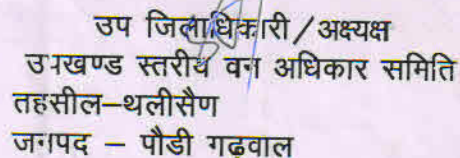 उप जिलाधिकारी/अक्ष्यक्ष
उपखण्ड स्तरीय वन अधिकार समिति
तहसील–थलीसैण
जनपद – पौडी गढ़वाल